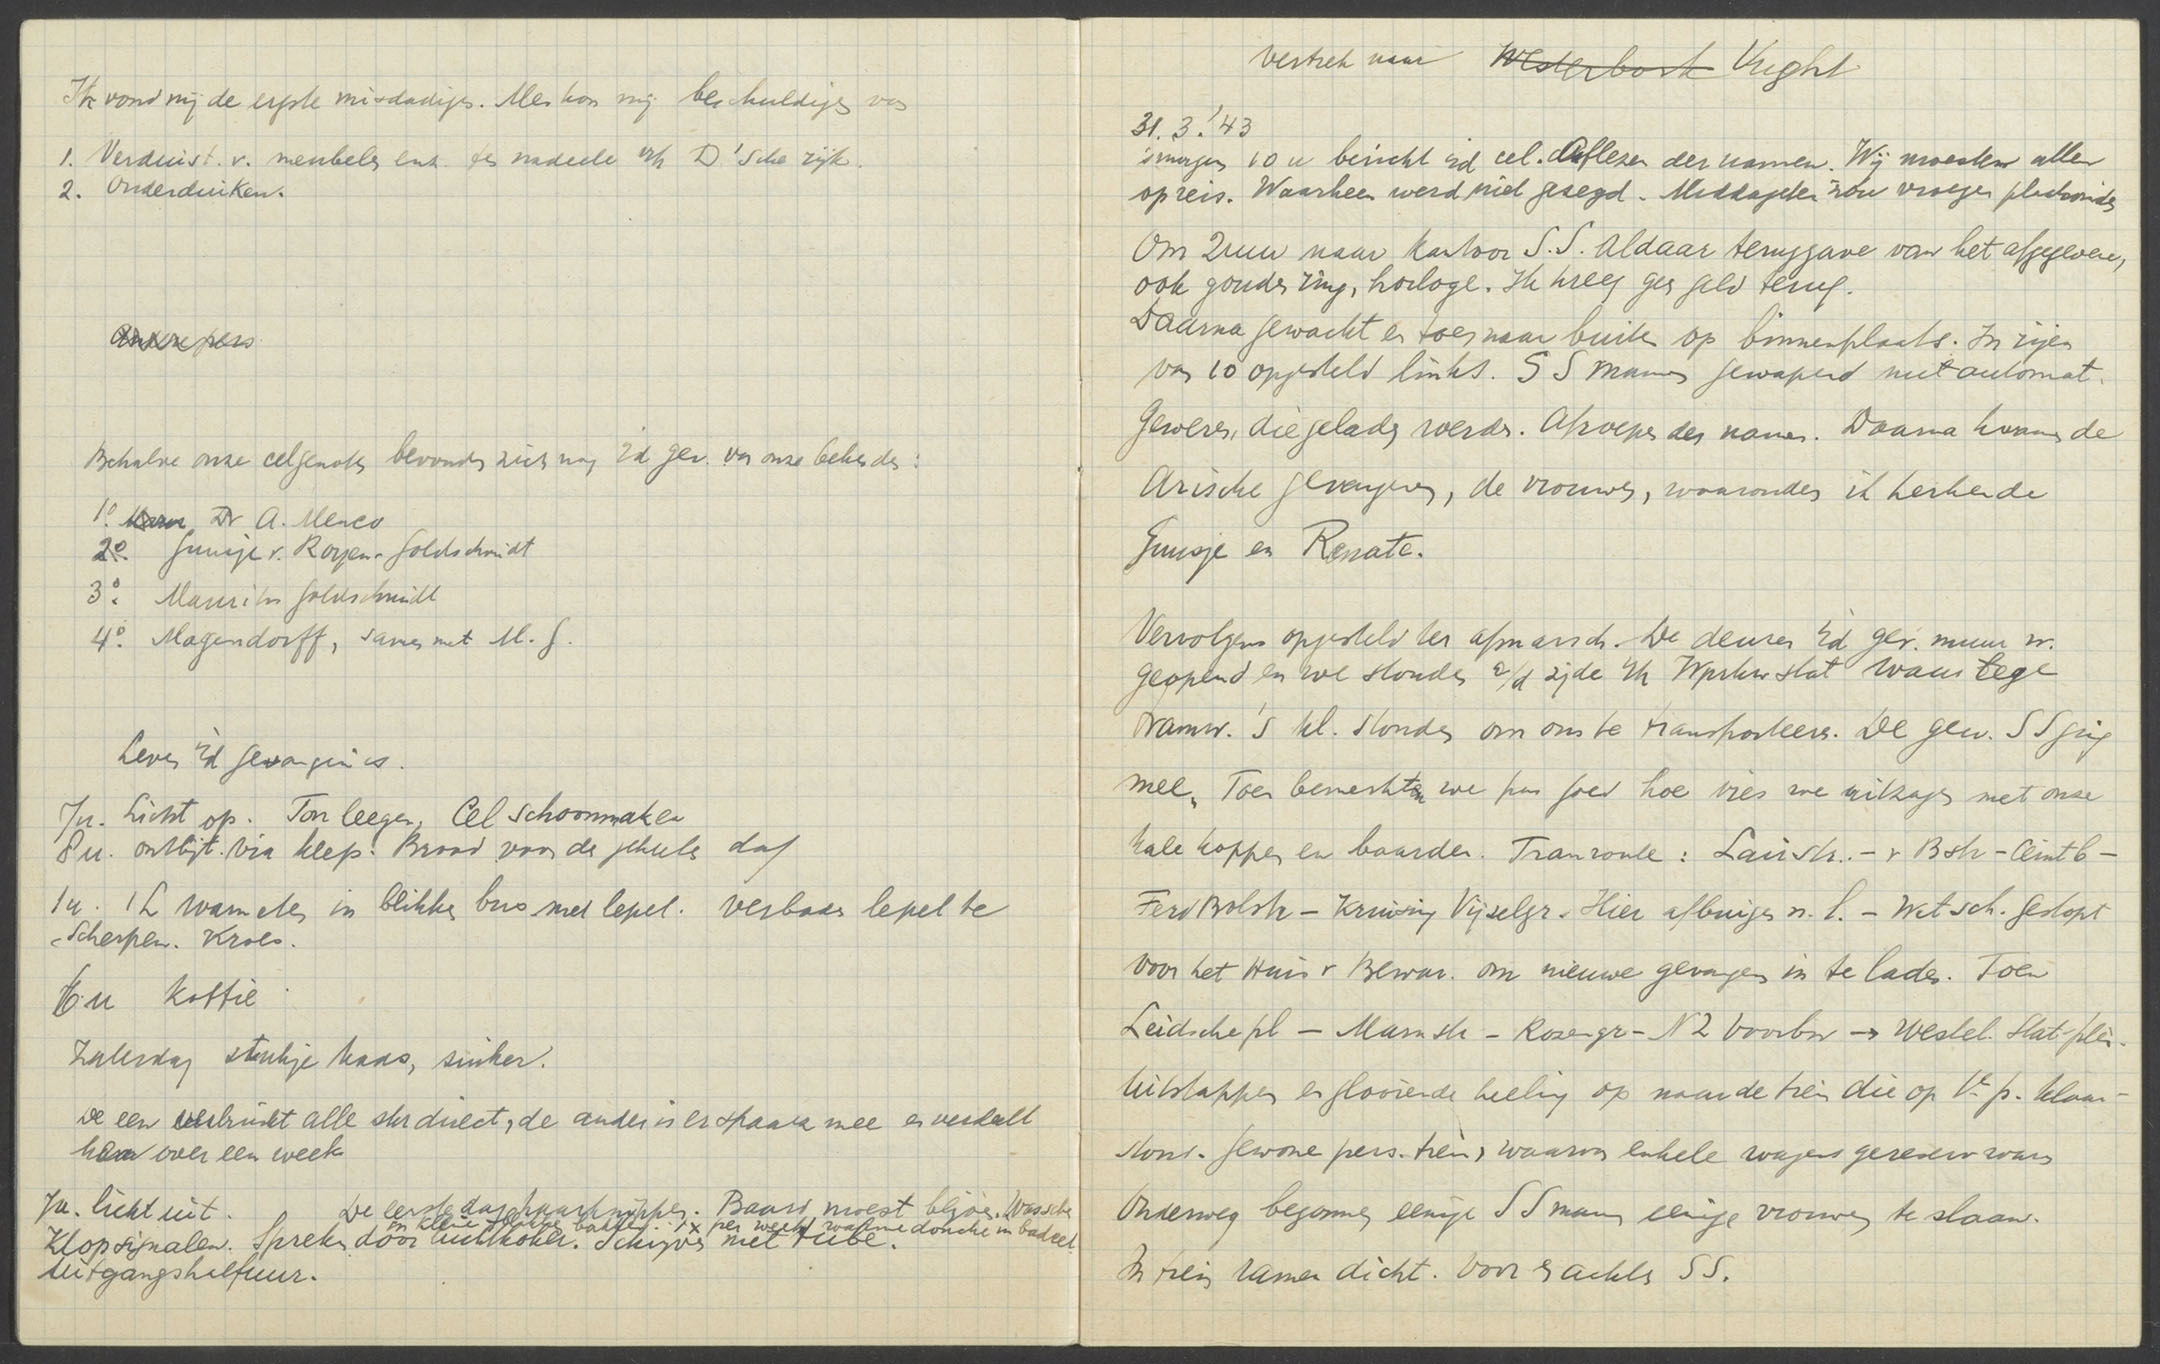 Ik vond mij de ergste misdadiger. Men kon mij beschuldigen van
1. Verduist. v. meubelen enz. ten nadeele v/h D'sche rijk.
2. Onderduiken.
Behalve onze celgenoten bevonden zich nog i/d gev. van onze bekenden:
1º. Dr A. Menco
2º. Guusje v. Royen-Goldschmidt
3º. Maurits Goldschmidt
4º. Magendorff, samen met M. G.
Leven i/d gevangenis.
7u. Licht op. Ton leegen, Cel schoonmaken
8u. ontbijt. via klep. Brood voor de geheele dag
1u. 1 L warm eten in blikken bus met lepel. verboden lepel te
scherpen. Kroes.
6 u Koffie
Zaterdag stukje kaas, suiker.
De een verbruikt alle skr direct, de ander is er spaarz mee en verdeelt
hem over een week
7u. licht uit. De eerste dag haarknippen. Baard moest blijven. Wasschen
in kleine bakken. 1x per week warme douche in badcel
Klopsignalen. Spreken door luchtkoker. Schijven met tube.
Uitgangshalfuur.
vertrek naar Westerbork Vught
31. 3. '43
's morgens 10 u bericht i/d cel. Aflezen der namen. Wij moesten allen
op reis. Waarheen werd niet gezegd. Middageten zou vroeger plaatsvinden
Om 2 uur naar kantoor S.S. Aldaar teruggave van het afgegevene,
ook gouden ring, horloge. Ik kreeg geen geld terug.
Daarna gewacht en toen naar buiten op binnenplaats. In rijen
van 10 opgesteld links. SS mannen gewapend met automat.
Geweren, die geladen werden. Afroepen der namen. Daarna kwamen de
Arische gevangenen, de vrouwen, waaronder ik herkende
Guusje en Renate.
Vervolgens opgesteld ter afmarsch. De deuren i/d gev. muur w.
geopend en we stonden a/d zijde v/h waar lege
tramw. 's kl. stonden om ons te transporteeren. De gew. SS ging
mee. Toen bemerkten we pas goed hoe vies we uitzagen met onze
kale koppen en baarden. Tramroute: Lairstr. - v Bstr - Ceintb -
Ferd Bolstr - Kruising Vijzelgr. Hier afbuigen n. l. - Wetsch. Gestopt
voor het Huis v Bewar. om nieuwe gevangen in te laden. Toen
Leidschepl - Marnstr - Rozengr - N Z Voorbw → Westel. Stat. plein.
Uitstappen en glooiende helling op naar de trein die op 1e p. klaar-
stond. Gewone pers. trein, waarvan enkele wagens gereserv waren
Onderweg begonnen eenige SS mann eenige vrouwen te slaan.
In trein ramen dicht. Voor en achter SS.